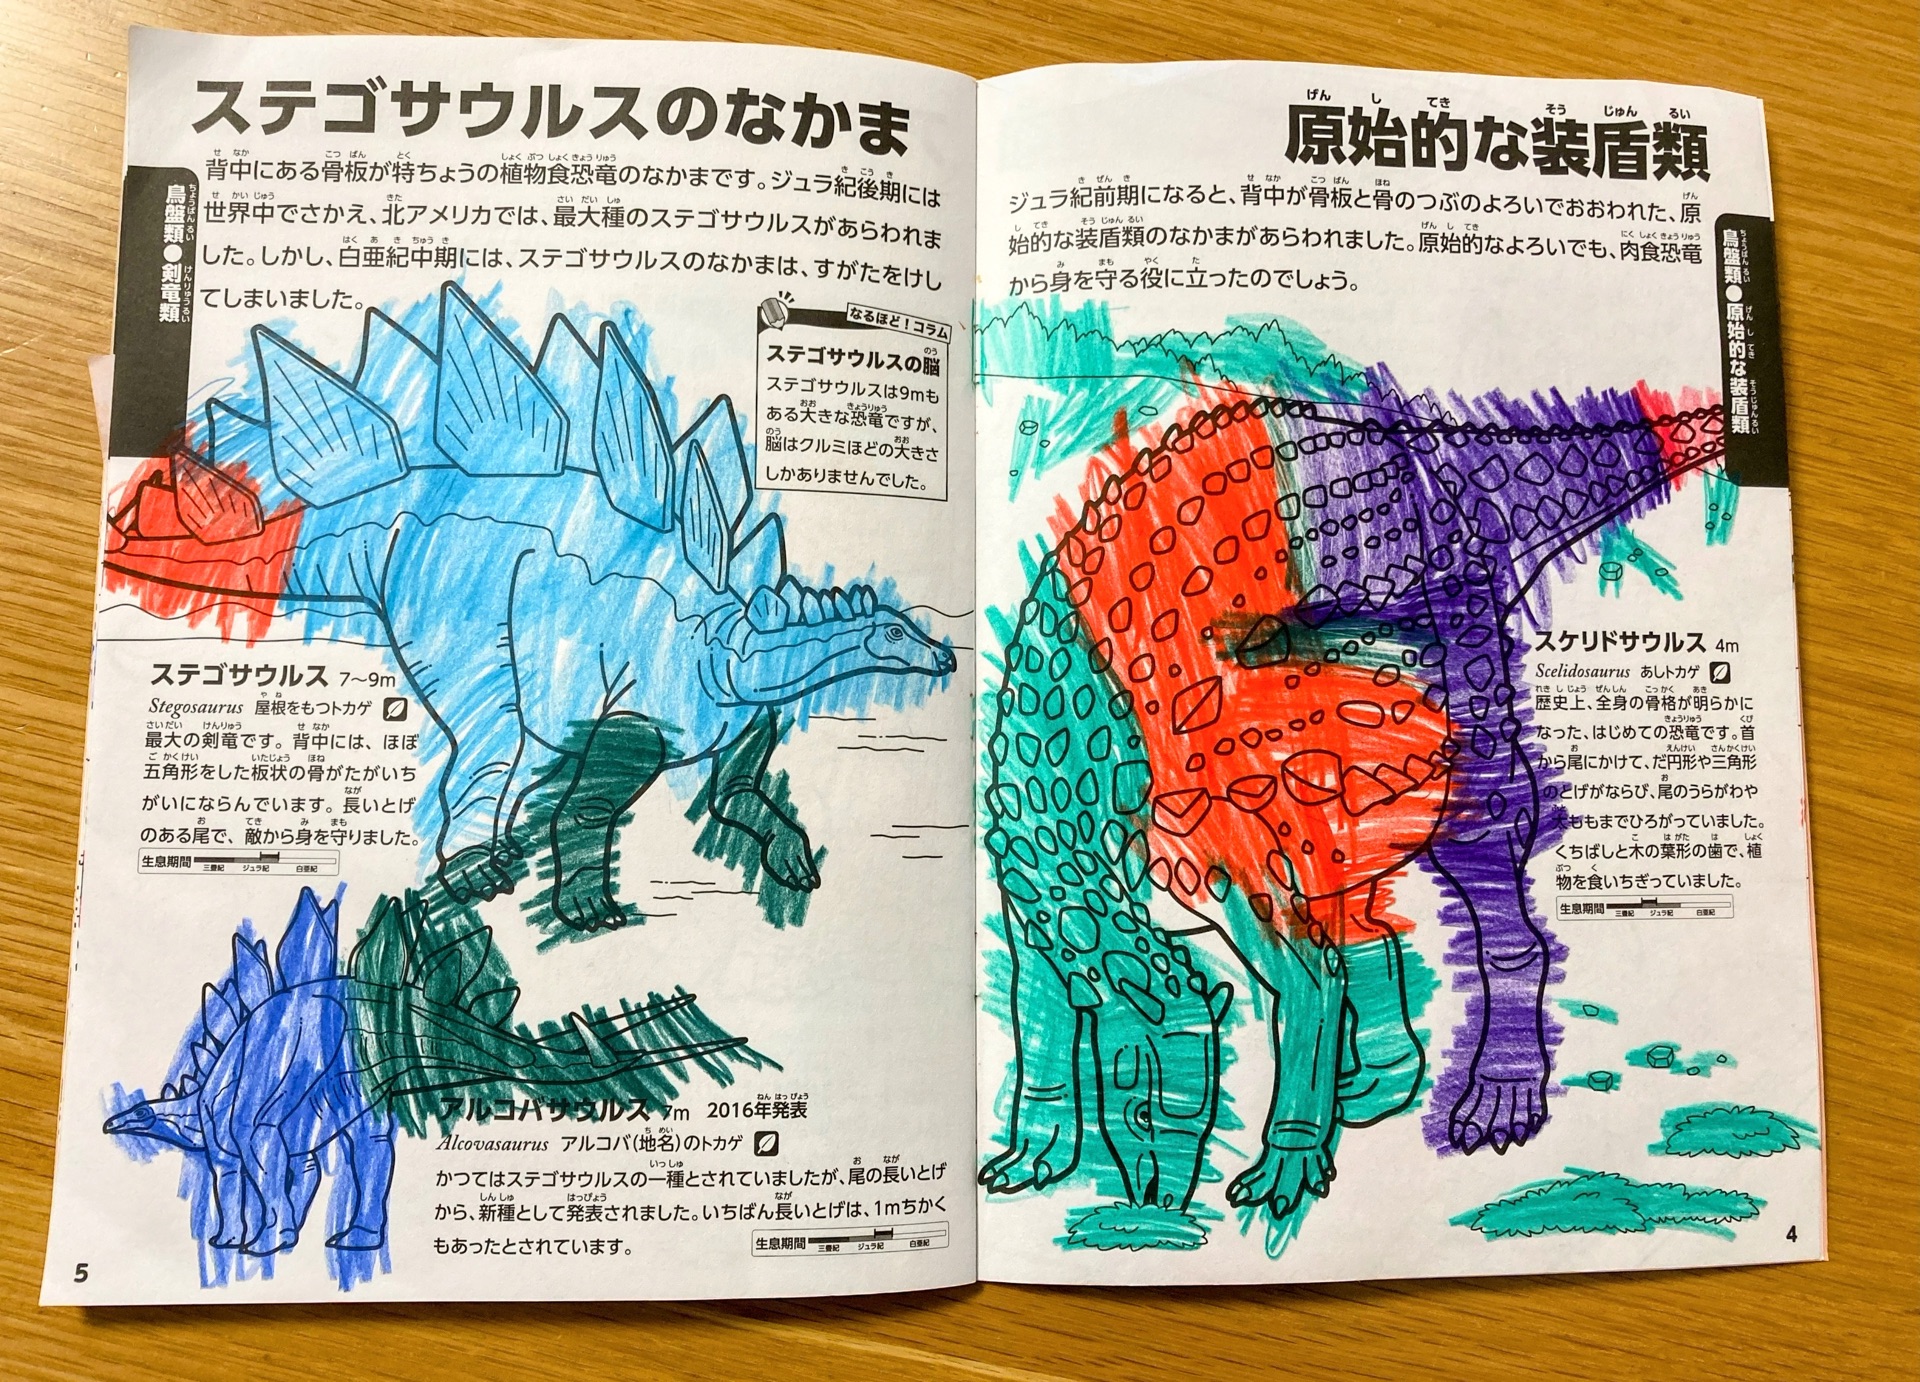 原始的な装盾類
ジュラ紀前期になると、背中が骨板と骨のつぶのよろいでおおわれた、原
始的な装盾類のなかまがあらわれました。原始的なよろいでも、肉食恐竜
から身を守る役に立ったのでしょう。
鳥盤類●原始的な装盾類
スケリドサウルス 4m
Scelidosaurus あしトカゲ
歴史上、全身の骨格が明らかに
なった、はじめての恐竜です。首
から尾にかけて、だ円形や三角形
のとげがならび、尾のうらがわや
太ももまでひろがっていました。
くちばしと木の葉形の歯で、植
物を食いちぎっていました。
生息期間 三畳紀 ジュラ紀 白亜紀
4
ステゴサウルスのなかま
背中にある骨板が特ちょうの植物食恐竜のなかまです。ジュラ紀後期には
世界中でさかえ、北アメリカでは、最大種のステゴサウルスがあらわれま
した。しかし、白亜紀中期には、ステゴサウルスのなかまは、すがたをけし
てしまいました。
鳥盤類●剣竜類
なるほど!コラム
ステゴサウルスの脳
ステゴサウルスは9mも
ある大きな恐竜ですが、
脳はクルミほどの大きさ
しかありませんでした。
ステゴサウルス 7〜9m
Stegosaurus 屋根をもつトカゲ
最大の剣竜です。背中には、ほぼ
五角形をした板状の骨がたがいち
がいにならんでいます。長いとげ
のある尾で、敵から身を守りました。
生息期間 三畳紀 ジュラ紀 白亜紀
アルコバサウルス 7m 2016年発表
Alcovasaurus アルコバ(地名)のトカゲ
かつてはステゴサウルスの一種とされていましたが、尾の長いとげ
から、新種として発表されました。いちばん長いとげは、1mちかく
もあったとされています。
生息期間 三畳紀 ジュラ紀 白亜紀
5